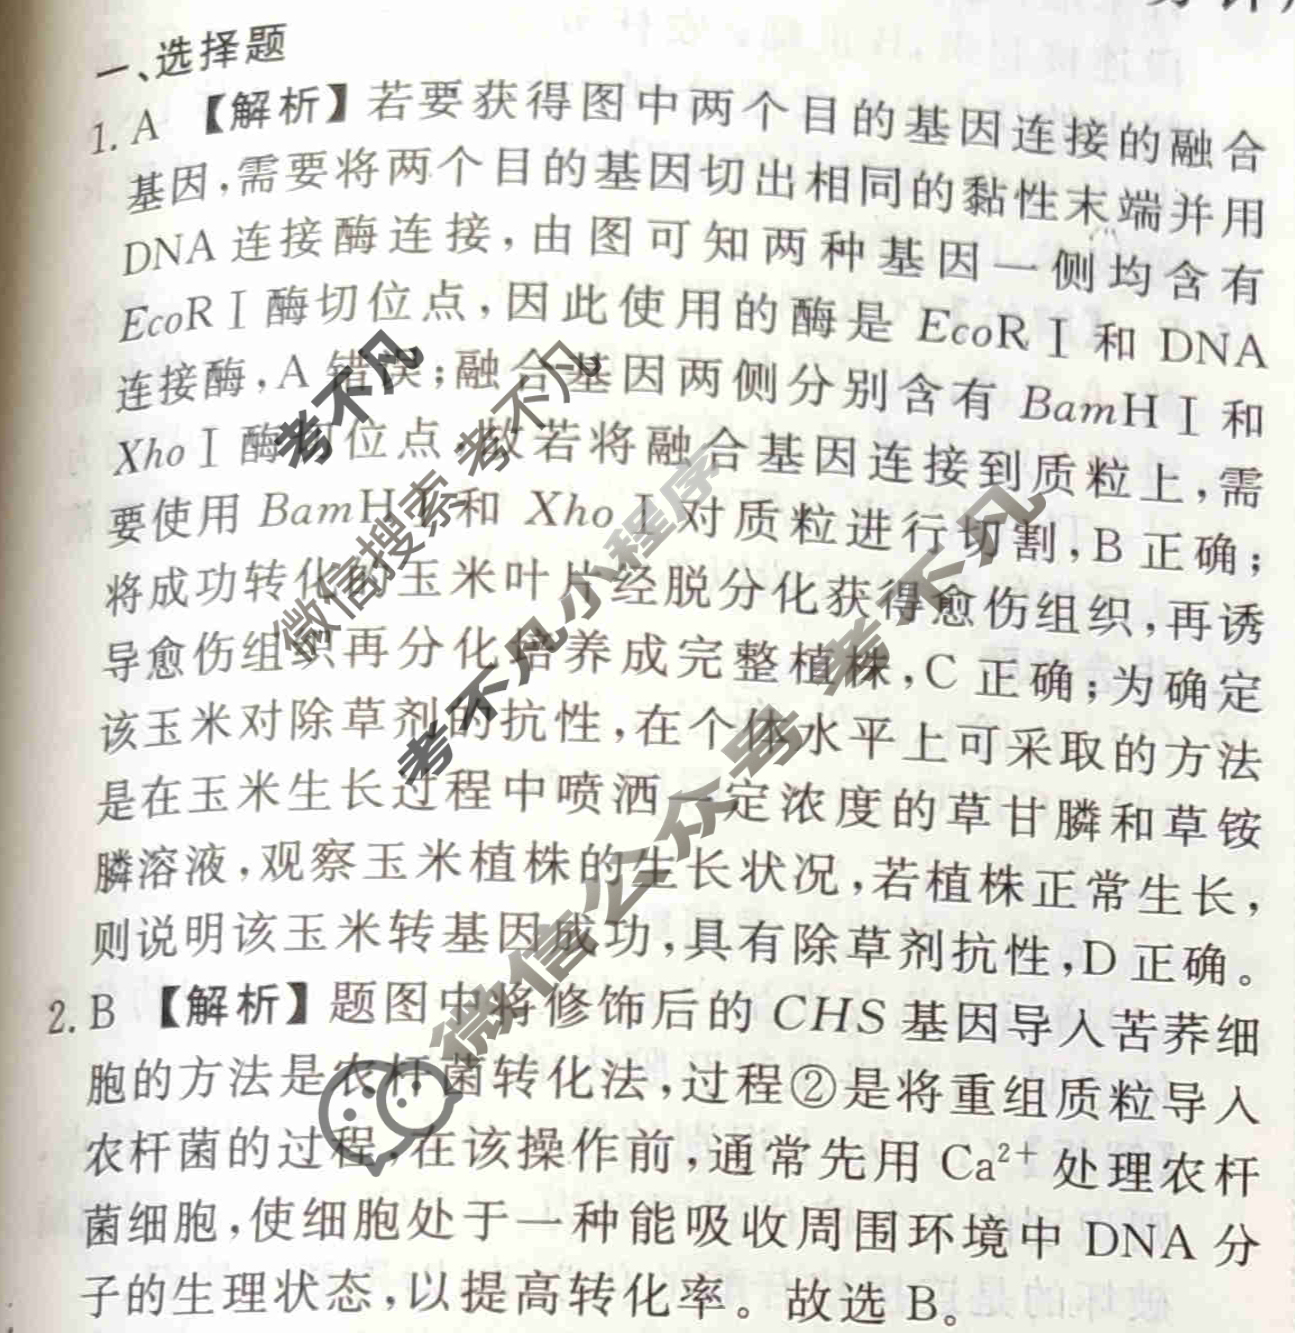 一、选择题
1. A 【解析】若要获得图中两个目的基因连接的融合
基因,需要将两个目的基因切出相同的黏性末端并用
DNA 连接酶连接,由图可知两种基因一侧均含有
EcoRⅠ酶切位点,因此使用的酶是 EcoRⅠ和 DNA
连接酶,A 错误;融合基因两侧分别含有 BamHⅠ和
XhoⅠ酶切位点,故若将融合基因连接到质粒上,需
要使用 BamHⅠ和 XhoⅠ对质粒进行切割,B 正确;
将成功转化的玉米叶片经脱分化获得愈伤组织,再诱
导愈伤组织再分化培养成完整植株,C 正确;为确定
该玉米对除草剂的抗性,在个体水平上可采取的方法
是在玉米生长过程中喷洒一定浓度的草甘膦和草铵
膦溶液,观察玉米植株的生长状况,若植株正常生长,
则说明该玉米转基因成功,具有除草剂抗性,D 正确。
2. B 【解析】题图中将修饰后的 CHS 基因导入苦荞细
胞的方法是农杆菌转化法,过程②是将重组质粒导入
农杆菌的过程,在该操作前,通常先用 Ca²⁺ 处理农杆
菌细胞,使细胞处于一种能吸收周围环境中 DNA 分
子的生理状态,以提高转化率。故选 B。
考不凡
微信搜索 考不凡
考不凡小程序
微信公众号 考不凡